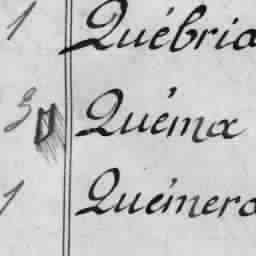 1 Québria
3 Quéma
1 Quémera